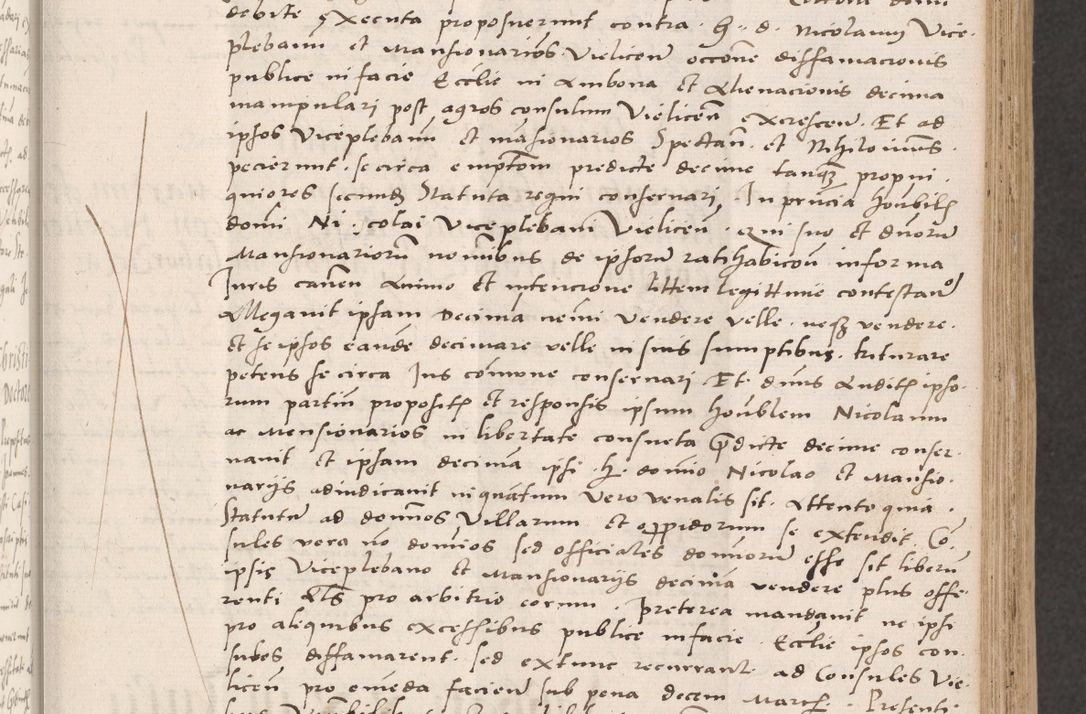 debite executa proposuerunt contra h. d. Nicolaum Vice
plebanum et Mansionarios Vielicen occone diffamacionis
publice in facie Ecclie in Ambona et Alienacionis decima
manipulari post agros consulum Vielicen excrescen. Et ad
ipsos Viceplebanum et mansionarios Spectan. et Nihilominus
pecierunt se circa emptom predicte decime tanquam propin
quiores secundum Statuta regni conservari. In pruncia Honbilis
domi Nicolai Viceplebani Vielicen. cum suo et duorum
Mansionariorum nominibus de ipsorum ratihabicon in forma
Iuris canen Animo et intencione littem legittime contestand
Allegavit ipsam Decima nemi vendere velle. nequsz vendere.
et se ipsos eande decimare velle in suis sumptibus. triturare
petens se circa Ius commone conservari Et dnus Auditis ipso
rum partim propositis et responsis ipsum Honblem Nicolaum
ac Mensionarios in libertate consueta predicte decime conser
vavit et ipsam decima ipsi h. domino Nicolao et Mansio
narijs adiudicavit inquantum vero venalis sit. Attento quia
Statutum ad dominos Villarum et oppidorum se extendit. Con
sules vero no domios sed officiales dominorum esse sit liberum
ipsis Viceplebano et Mansionarijs decima vendere plus offe
renti Als pro arbitrio eorum. Preterea mandavit ne ipsi
pro aliquibus excessibus publice in facie Ecclie ipsos con
sules diffamarent. sed extunc recurrant ad Consules Vie
licen pro emeda facien sub pena decem Marcis. Presenti